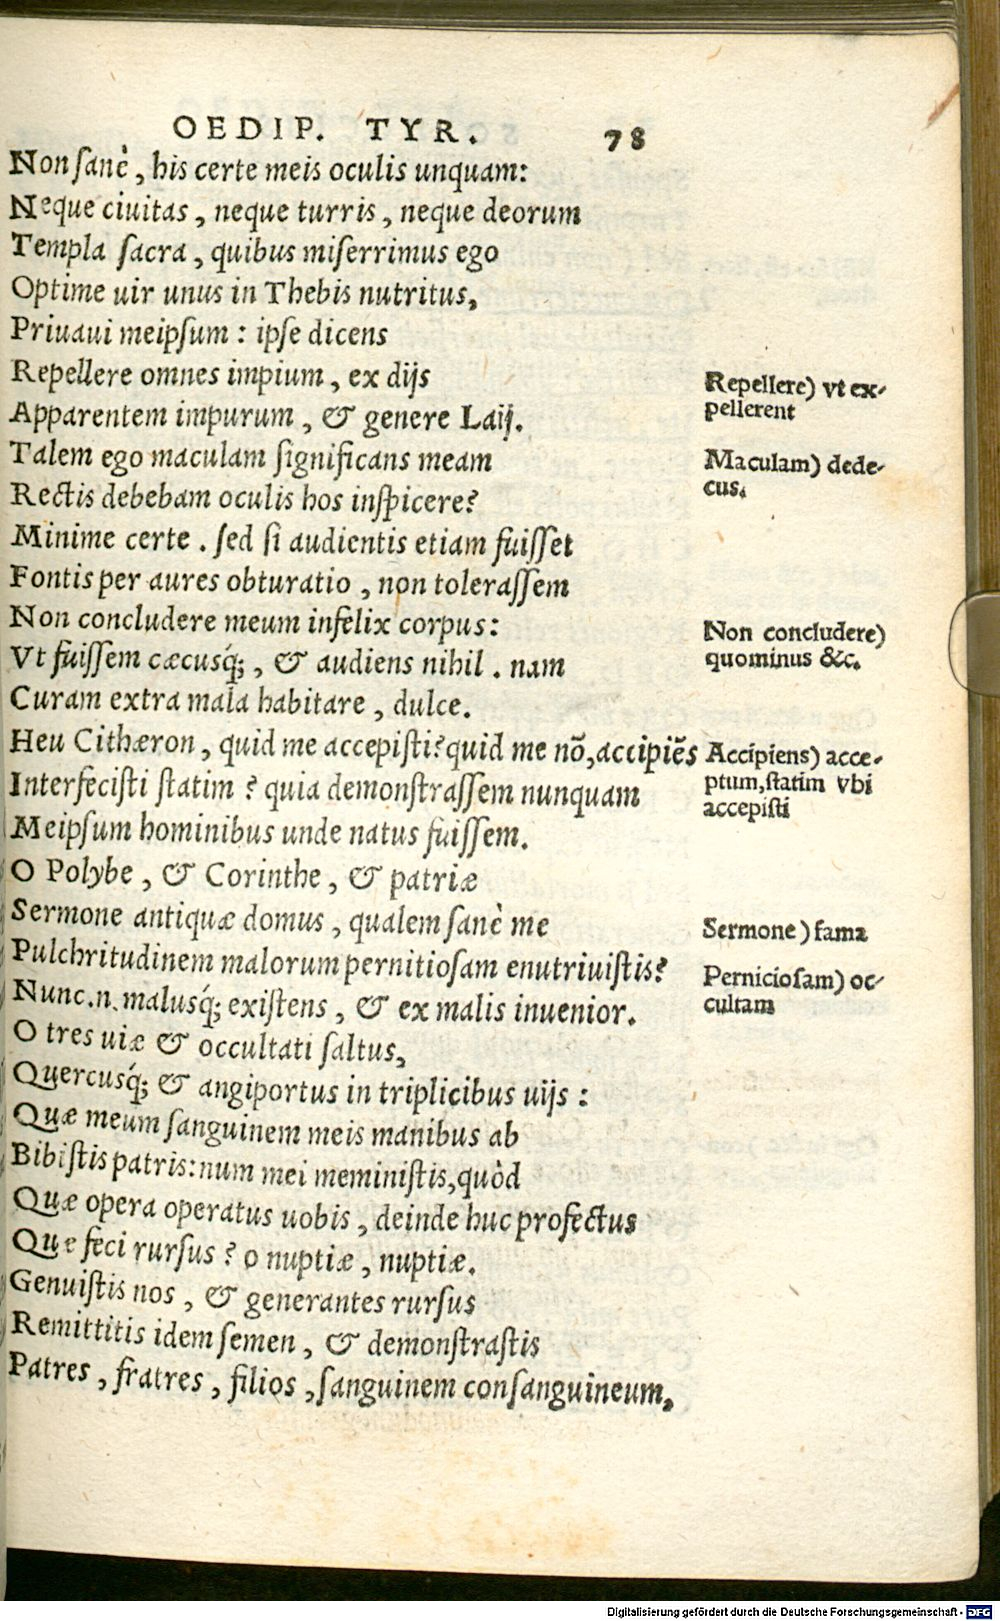 OEDIP. TYR. 78
Non sanè, his certe meis oculis unquam:
Neque ciuitas, neque turris, neque deorum
Templa sacra, quibus miserrimus ego
Optime uir unus in Thebis nutritus,
Priuaui meipsum: ipse dicens
Repellere omnes impium, ex dijs
Repellere) vt ex-
pellerent
Apparentem impurum, & genere Laij.
Talem ego maculam significans meam
Maculam) dede-
cus.
Rectis debebam oculis hos inspicere?
Minime certe. sed si audientis etiam fuisset
Fontis per aures obturatio, non tolerassem
Non concludere meum infelix corpus:
Non concludere)
quominus &c.
Vt fuissem cæcusq́;, & audiens nihil. nam
Curam extra mala habitare, dulce.
Heu Cithæron, quid me accepisti? quid me nõ, accipiẽs
Accipiens) acce-
ptum, statim vbi
accepisti
Interfecisti statim? quia demonstrassem nunquam
Meipsum hominibus unde natus fuissem.
O Polybe, & Corinthe, & patriæ
Sermone antiquæ domus, qualem sanè me
Sermone) fama
Pulchritudinem malorum pernitiosam enutriuistis?
Perniciosam) oc-
cultam
Nunc.n. malusq́; existens, & ex malis inuenior.
O tres uiæ & occultati saltus,
Quercusq́; & angiportus in triplicibus uijs:
Quæ meum sanguinem meis manibus ab
Bibistis patris: num mei meministis, quòd
Quæ opera operatus uobis, deinde huc profectus
Quæ feci rursus? o nuptiæ, nuptiæ.
Genuistis nos, & generantes rursus
Remittitis idem semen, & demonstrastis
Patres, fratres, filios, sanguinem consanguineum,
Digitalisierung gefördert durch die Deutsche Forschungsgemeinschaft - DFG